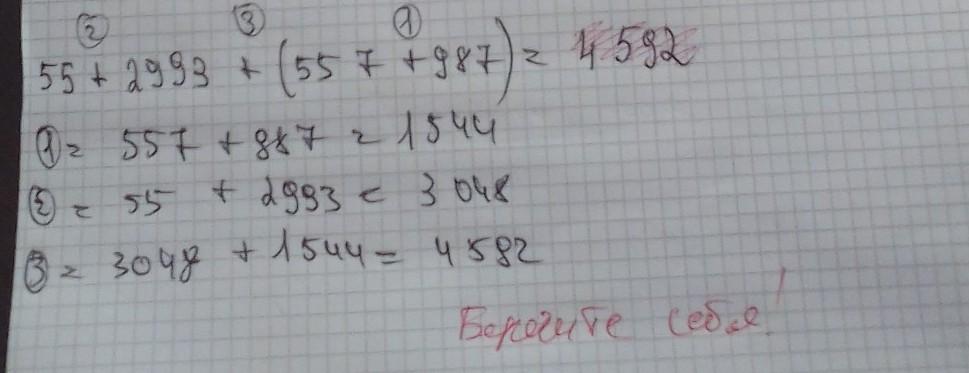 ② ③ ①
55 + 2993 + (557 + 987) = 4592
① = 557 + 987 = 1544
② = 55 + 2993 = 3048
③ = 3048 + 1544 = 4592
Берегите себя!